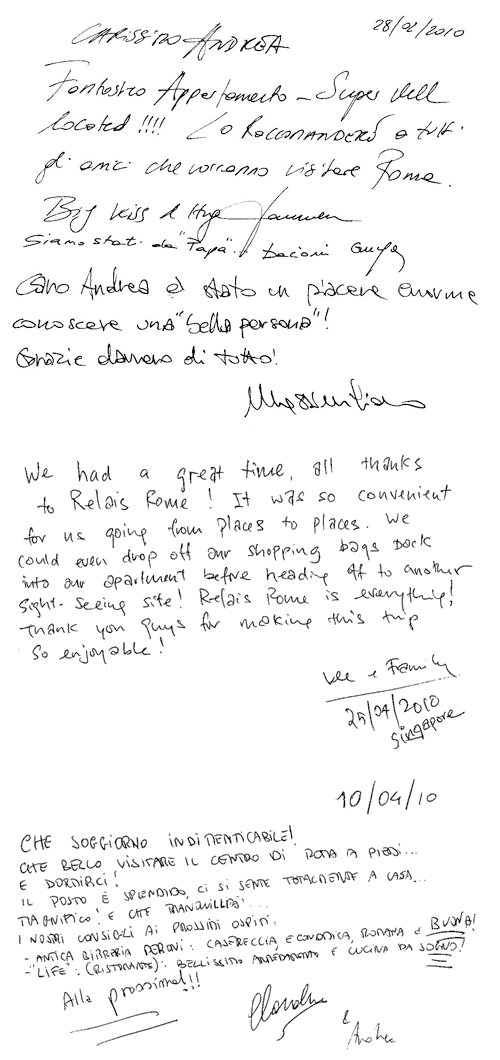 28/02/2010
CARISSIMO ANDREA
Fantastico Appartamento - Super Well
located !!!! Lo Raccomanderò a tutti
gli amici che vorranno visitare Roma.
Big kiss & Hug
Siamo stati da "Papà"
Caro Andrea è stato un piacere enorme
conoscere una "bella persona"!
Grazie davvero di tutto!
Massimiliano
We had a great time, all thanks
to Relais Rome! It was so convenient
for us going from places to places. We
could even drop off our shopping bags back
into our apartment before heading off to another
sight-seeing site! Relais Rome is everything!
Thank you guys for making this trip
so enjoyable!
& Family
25/04/2010
Singapore
10/04/10
CHE SOGGIORNO INDIMENTICABILE!
CHE BELLO VISITARE IL CENTRO DI ROMA A PIEDI...
E DORMIRCI!
IL POSTO È SPLENDIDO, CI SI SENTE TOTALMENTE A CASA...
MAGNIFICO! E CHE TRANQUILLITÀ...
I NOSTRI CONSIGLI AI PROSSIMI OSPITI:
- ANTICA BIRRERIA PERONI: CASERECCIA, ECONOMICA, ROMANA E BUONA!
- "LIFE": (RISTORANTE): BELLISSIMO ARREDAMENTO E CUCINA DA SOGNO!
Alla prossima!!!
Claudia
e
Andrea